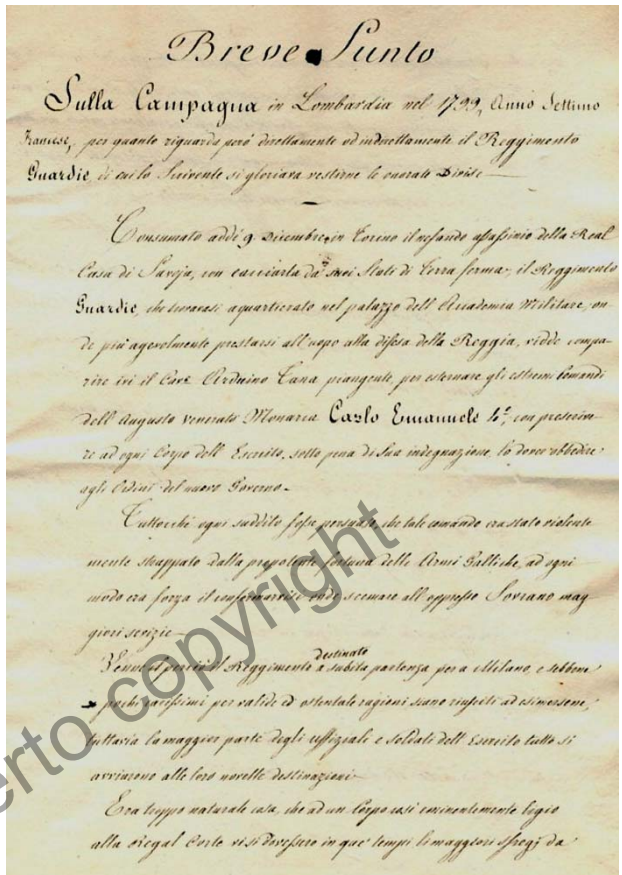 Breve Sunto
Sulla Campagna in Lombardia nel 1799, Anno Settimo
Francese, per quanto riguarda però direttamente od indirettamente il Reggimento
Guardie, di cui lo Scrivente si gloriava vestirne le onorate Divise
Consumato addì 9 Dicembre in Torino il nefando assassinio della Real
Casa di Savoja, con cacciarla da' suoi Stati di Terra ferma, il Reggimento
Guardie, che trovavasi aquartierato nel palazzo dell'Academia Militare, on-
de più agevolmente prestarsi all'uopo alla difesa della Reggia, vidde compa-
rire ivi il Cave. Arduino Tana piangente, per esternare gli estremi Comandi
dell'Augusto venerato Monarca Carlo Emanuele 4°, con prescrive-
re ad ogni Corpo dell'Esercito, sotto pena di Sua indegnazione, lo dover obbedire
agli Ordini del nuovo Governo.
Tuttochè ogni suddito fosse persuaso, che tale comando era stato violente
mente strappato dalla prepotente fortuna delle Armi Galliche, ad ogni
modo era forza il conformarvisi onde scemare all'oppresso Sovrano mag
giori sevizie
Venne perciò il Reggimento destinato a subita partenza per a Milano, e sebbene
pochi rarissimi per valide od ostentate ragioni siano riusciti ad esimersene,
tuttavia la maggior parte degli uffiziali e soldati dell'Esercito tutto si
avviarono alle loro novelle destinazioni
Era troppo naturale cosa, che ad un Corpo così eminentemente ligio
alla Regal Corte vi si dovessero in que' tempi li maggiori sfregj da
erto copyright